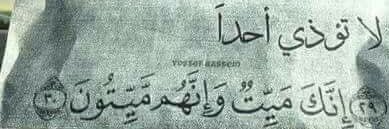 لا تؤذي أحداً
Yossef Kassem
﴿٢٩﴾ إِنَّكَ مَيِّتٌ وَإِنَّهُم مَّيِّتُونَ ﴿٣٠﴾